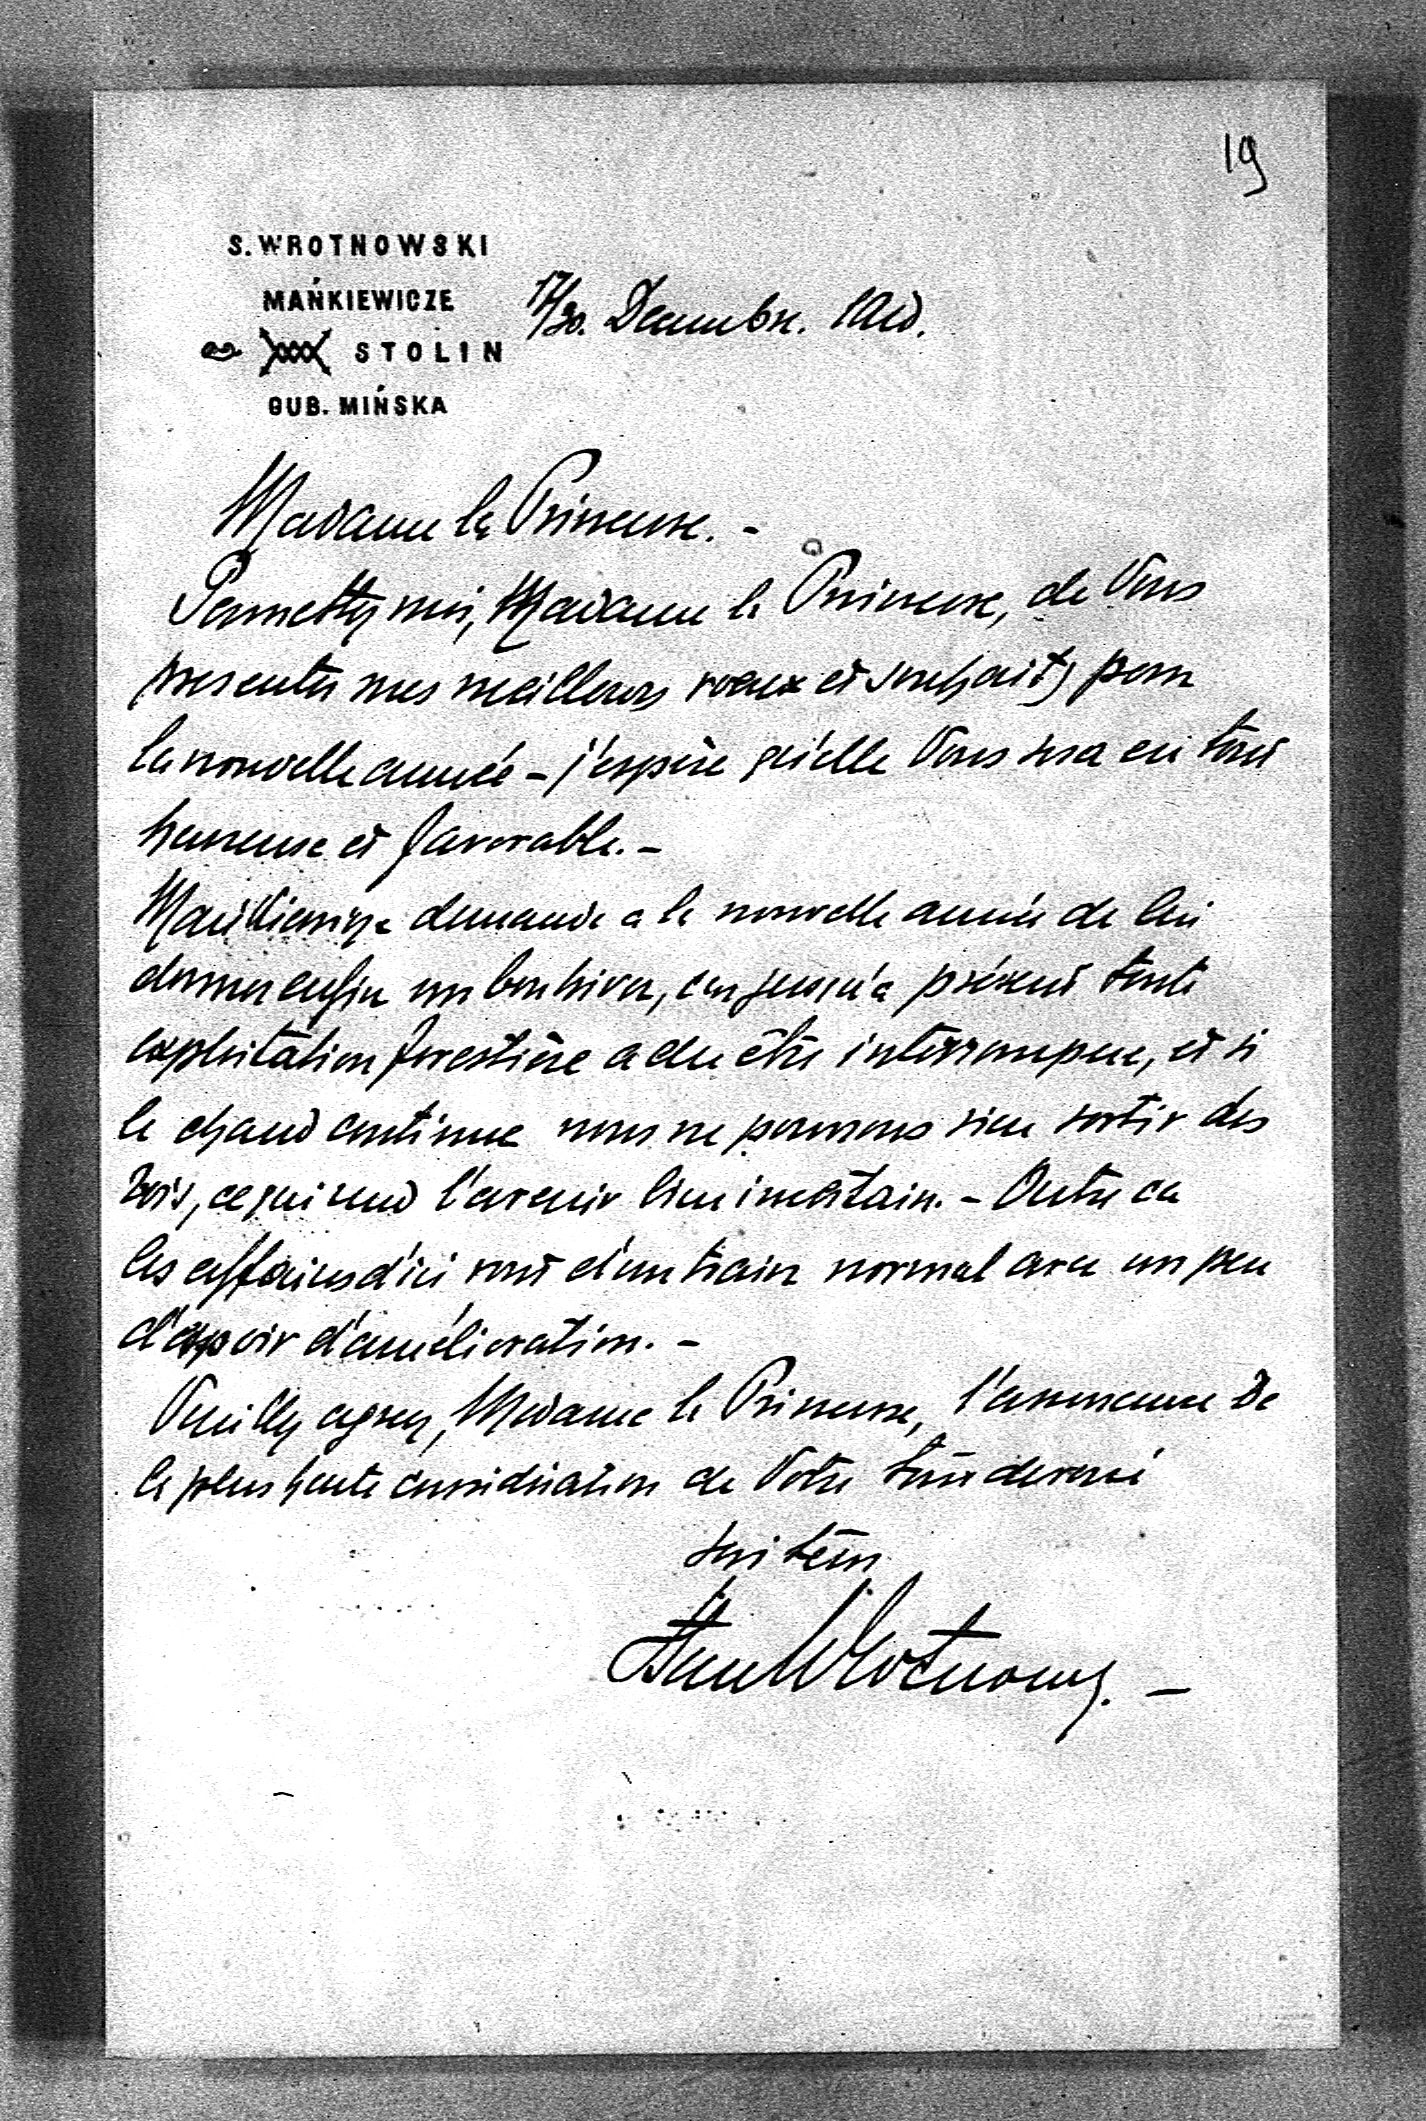 19
S. WROTNOWSKI
MAŃKIEWICZE
STOLIN
GUB. MIŃSKA
17/30. Decembre. 1910.
Madame la Princesse. -
Permettez moi, Madame la Princesse, de Vous
presenter mes meilleurs voeux et souhaits pour
la nouvelle année - j'espère qu'elle Vous sera en tout
heureuse et favorable. -
Mańkiewicze demande a la nouvelle année de lui
donner enfin un bon hiver, car jusqu'a présent toute
exploitation forestière a du être interrompue, et si
le chaud continue nous ne pourrons rien sortir des
bois, ce qui rend l'avenir bien incertain. - Outre ca
les affaires d'ici vont d'un train normal avec un peu
d'espoir d'amélioration. -
Veuillez agreer, Madame la Princesse, l'assurance de
la plus haute considération de Votre tout devoué
serviteur
Stan Wrotnowski. -